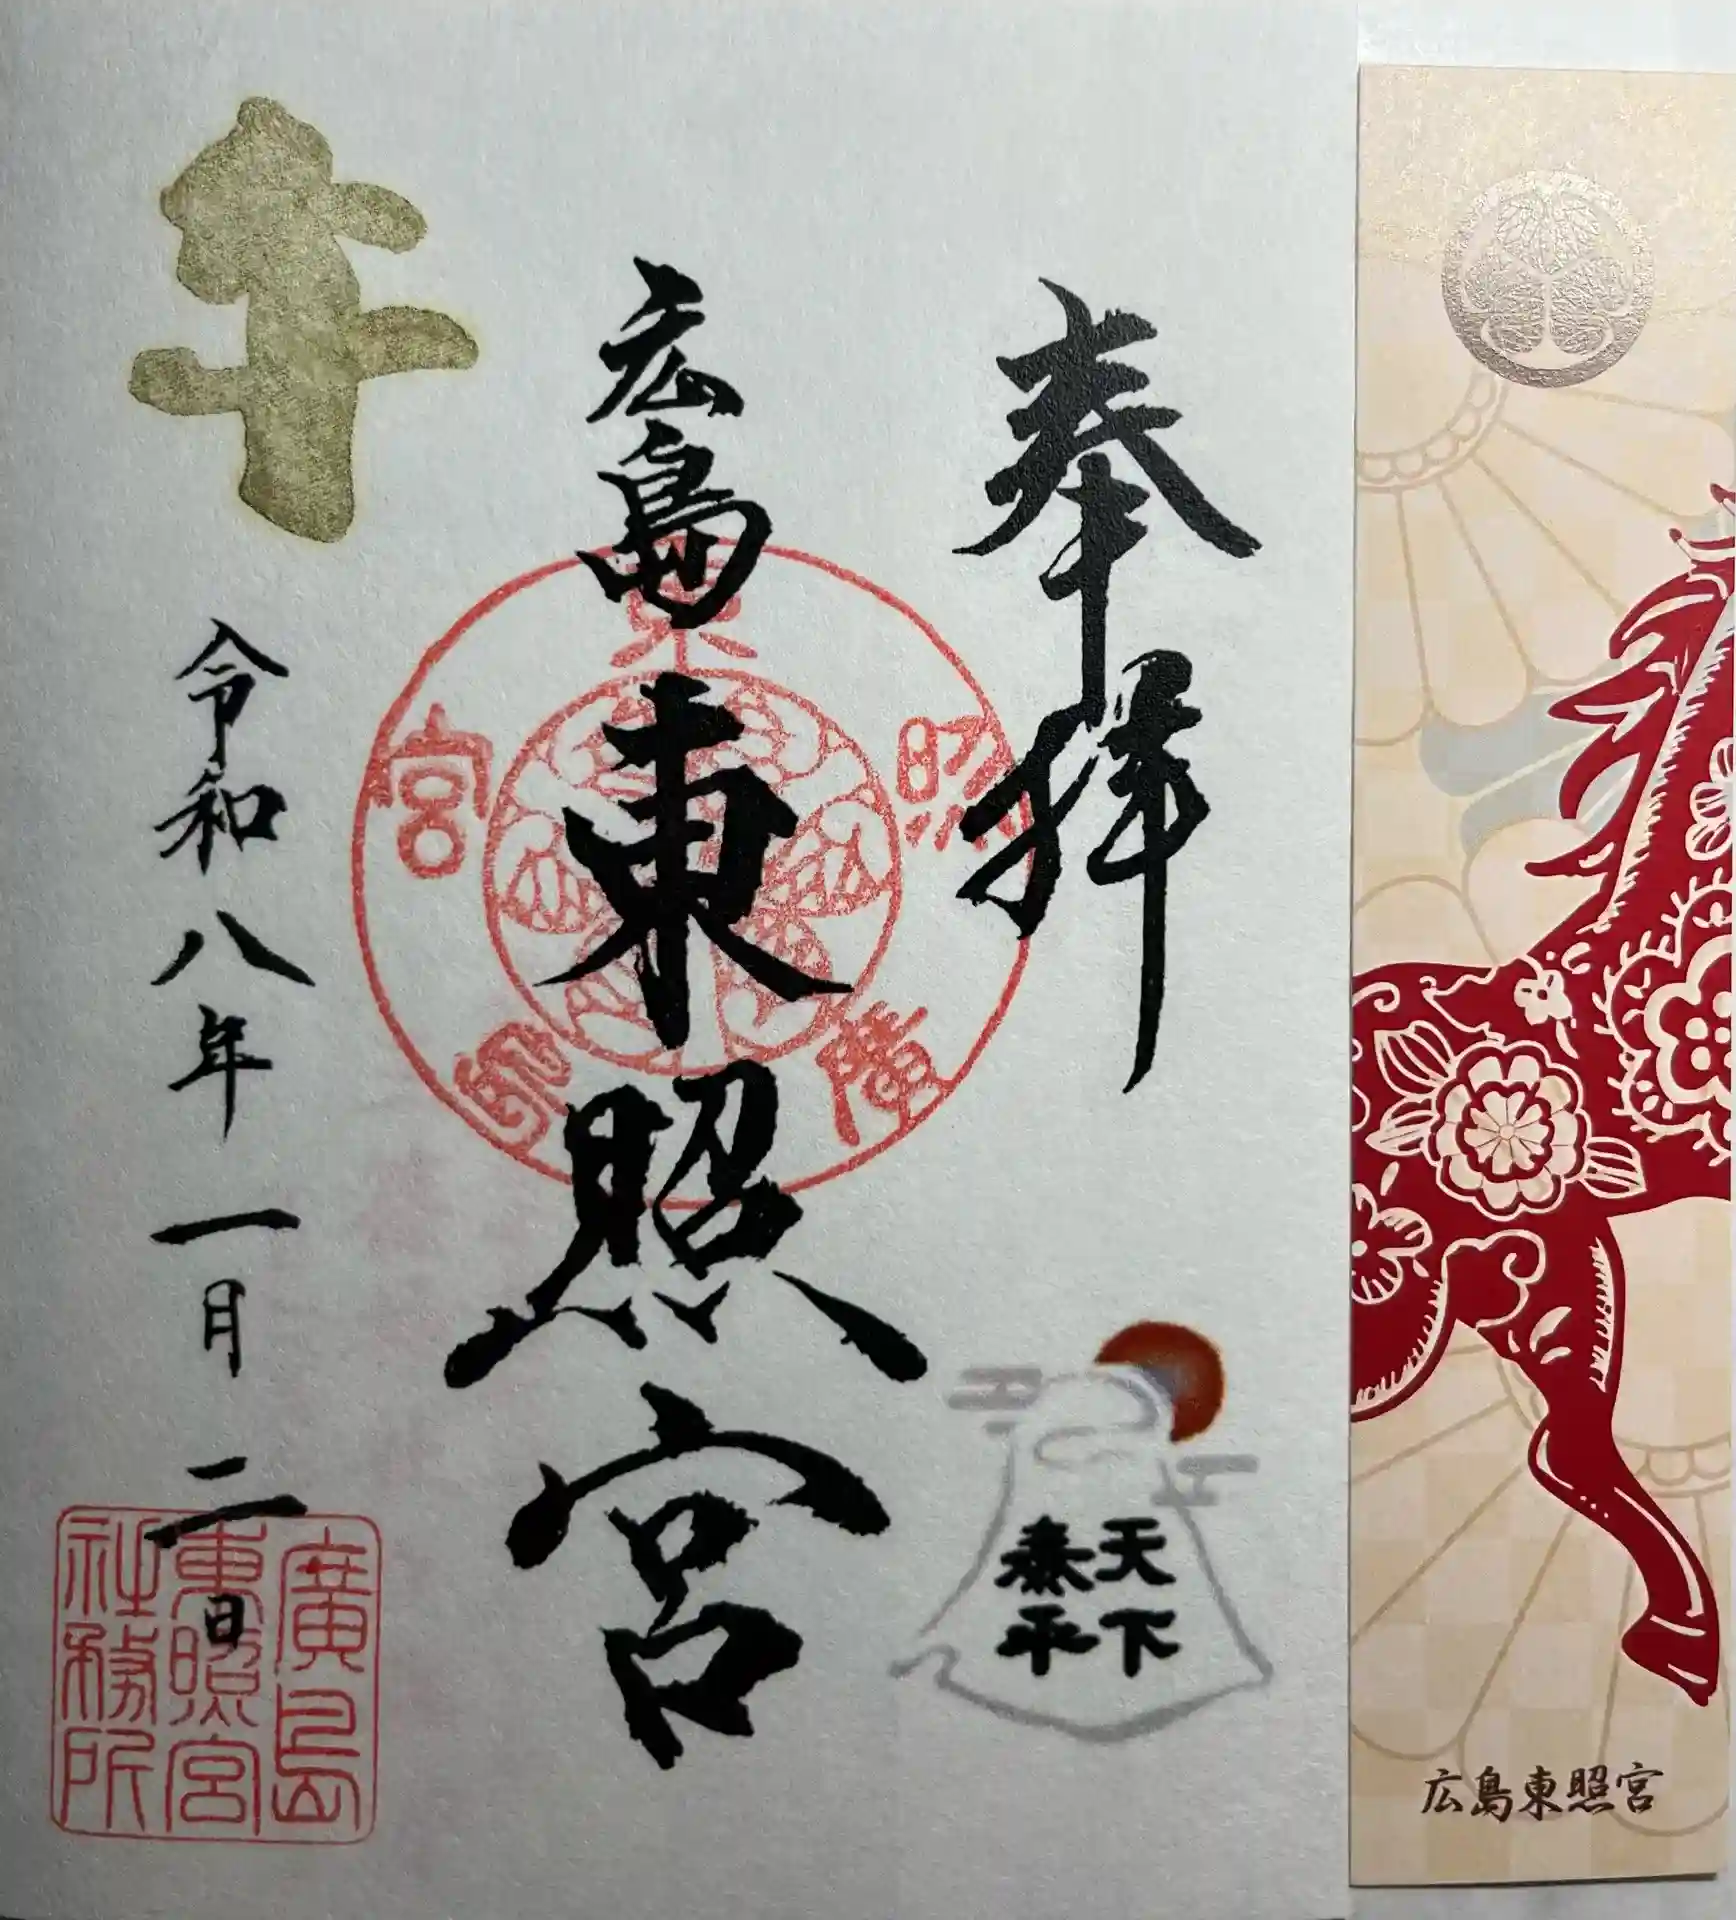 奉拝
広島東照宮
午
令和八年一月二日
東照宮廣島
天下
泰平
廣島
東照宮
社務所
広島東照宮